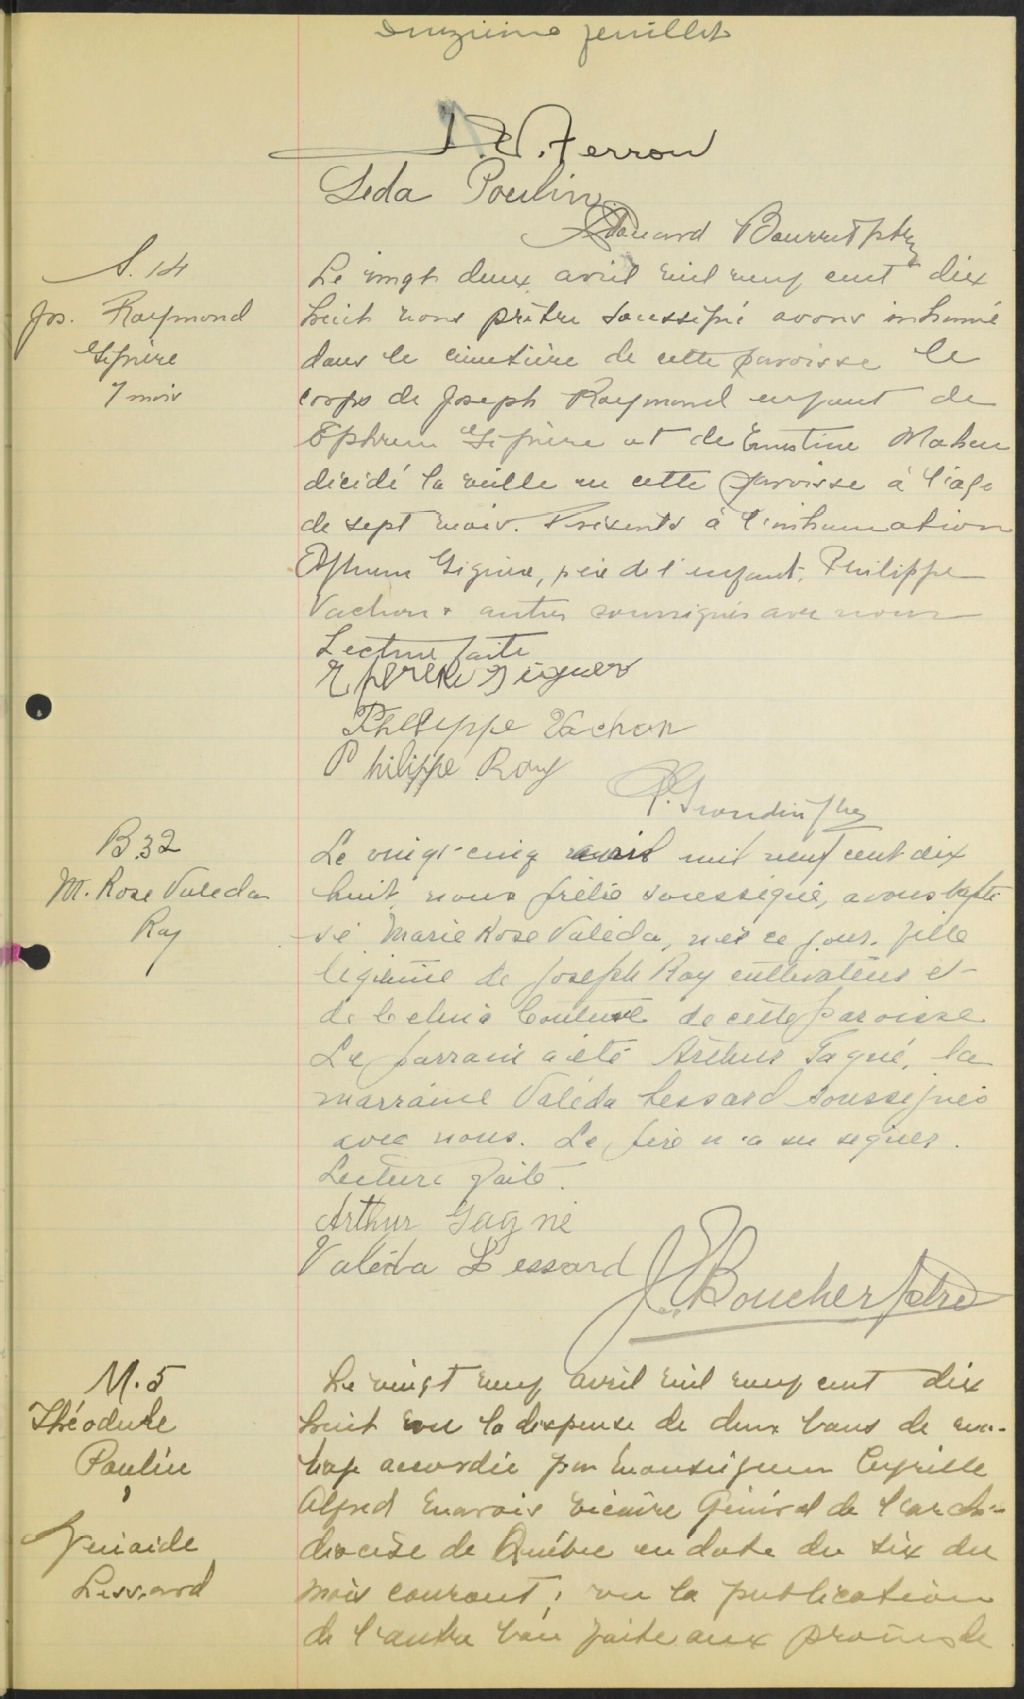 feuillet
J. V. Ferron
Leda Poulin
Edouard Bourret ptre
S. 14
Jos. Raymond
Giguère
7 mois
Le vingt deux avril mil neuf cent dix
huit nous prêtre soussigné avons inhumé
dans le cimetière de cette paroisse le
corps de Joseph Raymond enfant de
Ephrem Giguère et de Ernestine Maheu
décédé la veille en cette paroisse à l'âge
de sept mois. Présents à l'inhumation
Ephrem Giguère, père de l'enfant, Philippe
Vachon & autres soussignés avec nous
Lecture faite
Ephrem Giguere
Philippe Vachon
Philippe Roy
P. Grondin ptre
B 32
M. Rose Valeda
Roy
Le vingt-cinq avril mil neuf cent dix
huit, nous prêtre soussigné, avons bapti
sé Marie Rose Valéda, née ce jour, fille
légitime de Joseph Roy cultivateur et
de Celina Couture de cette paroisse
Le parrain a été Arthur Gagné, la
marraine Valéda Lessard soussignés
avec nous. Le père n'a su signer.
Lecture faite.
Arthur Gagné
Valéda Lessard
J. Boucher ptre
M. 5
Théodule
Poulin
&
Zénaide
Lessard
Le vingt neuf avril mil neuf cent dix
huit vu la dispense de deux bans de ma-
riage accordée par Monseigneur Cyrille
Alfred Marois Vicaire Général de l'archi-
diocèse de Québec en date du six du
mois courant; vu la publication
de l'autre ban faite aux prônes de